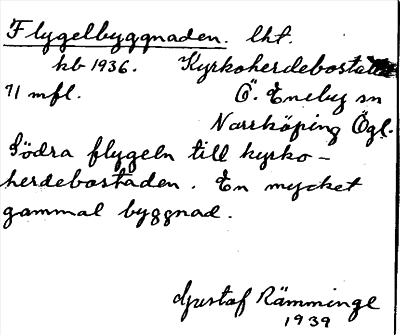 Flygelbyggnaden. lht.
kb 1936. Kyrkoherdebostället
71 mfl. Ö. Eneby sn
Norrköping Ögl.
Södra flygeln till kyrko-
herdebostaden. En mycket
gammal byggnad.
Gustaf Rämminge
1939